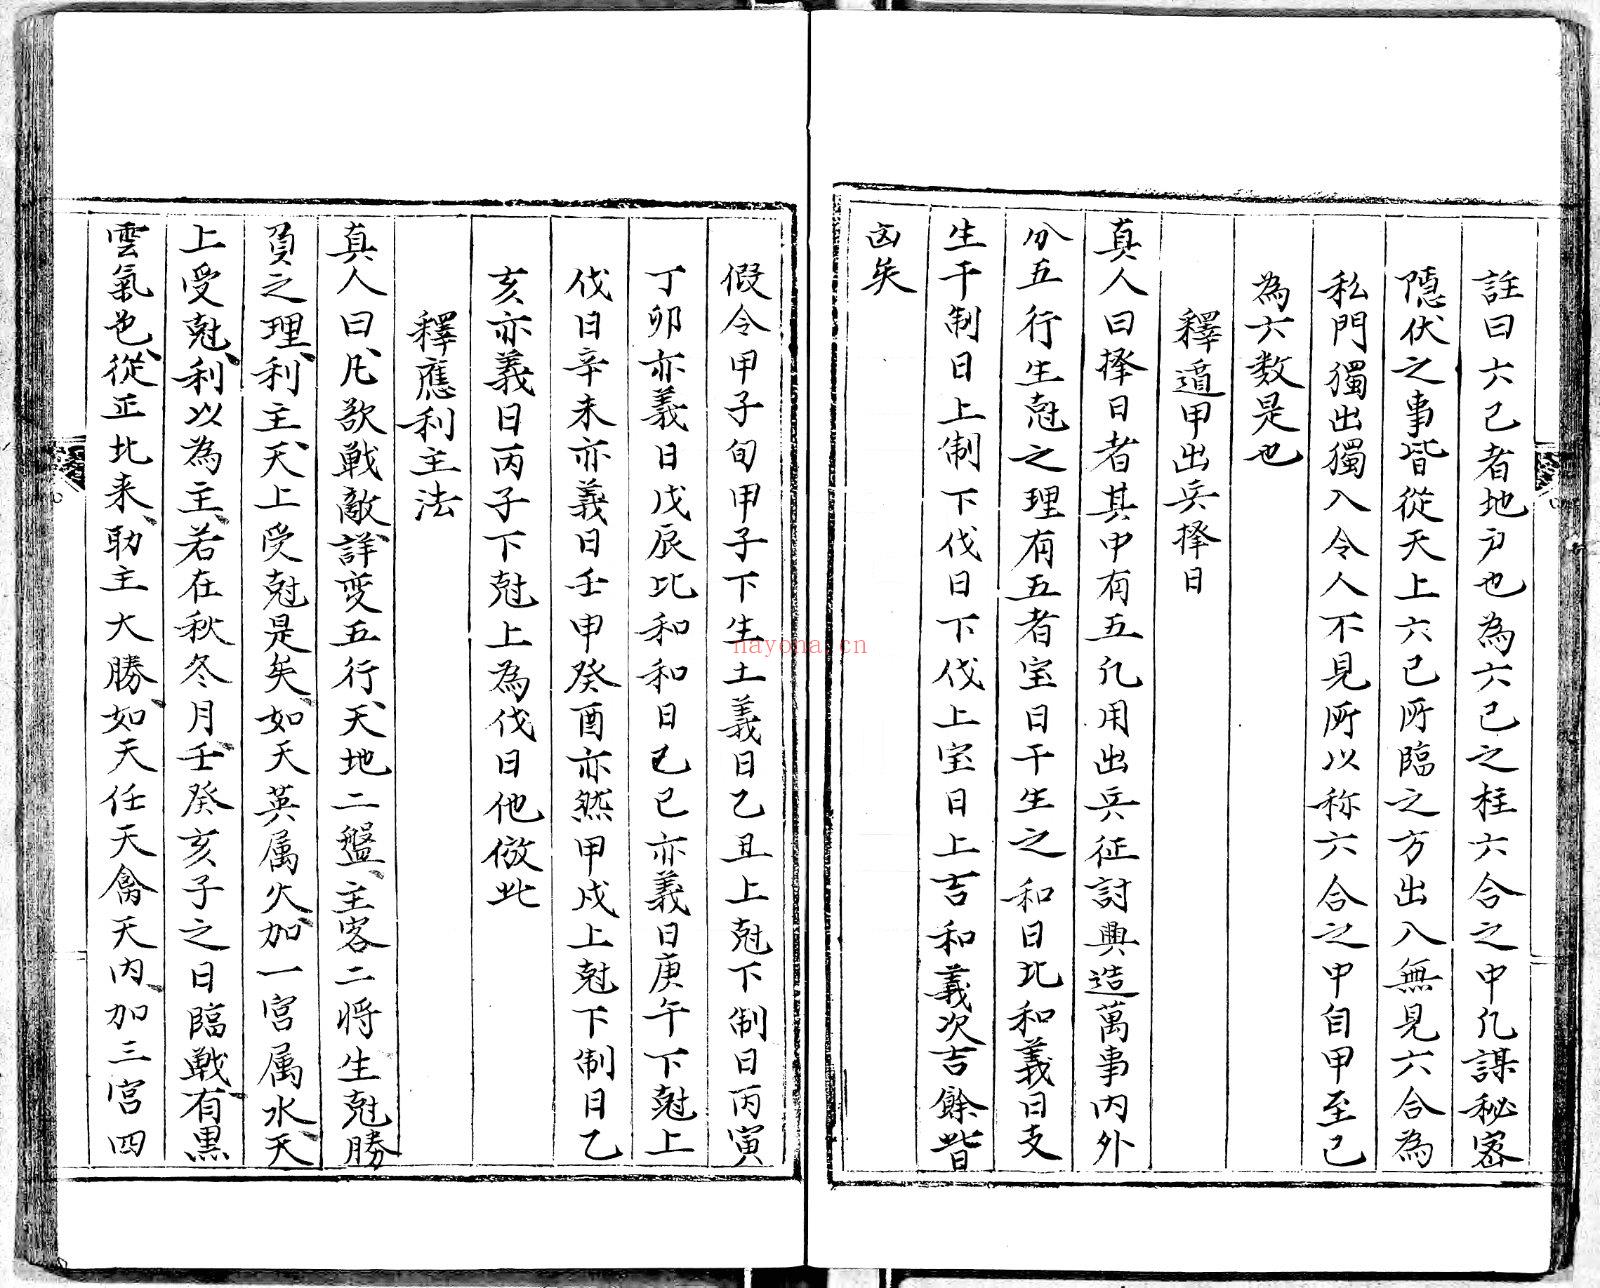 註曰六己者地户也為六己之柱六合之中凢謀秘密
隱伏之事皆從天上六己所臨之方出入無見六合為
私門獨出獨入令人不見所以称六合之中自甲至己
為六数是也
釋遁甲出兵擇日
真人曰擇日者其中有五凢用出兵征討興造萬事内外
分五行生尅之理有五者宝日干生之和日比和義日支
生干制日上制下伐日下伐上宝日上吉和義次吉餘皆
凶矣
假令甲子旬甲子下生上義日乙丑上尅下制日丙寅
丁卯亦義日戊辰比和和日己巳亦義日庚午下尅上
伐日辛未亦義日壬申癸酉亦然甲戍上尅下制日乙
亥亦義日丙子下尅上為伐日他倣此
釋應利主法
真人曰凢欲戰敵詳变五行天地二盤主客二将生尅勝
負之理利主天上受尅是矣如天英属火加一宫属水天
上受尅利以為主若在秋冬月壬癸亥子之日臨戰有黒
雲氣色從正北来助主大勝如天任天禽天内加三宫四
nayona.cn